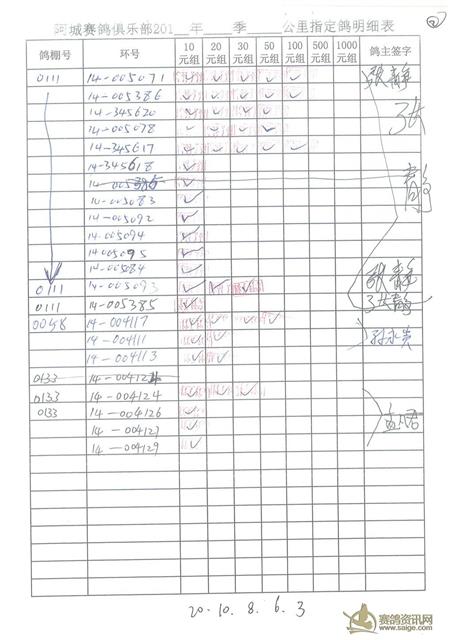 阿城赛鸽俱乐部201__年____季____公里指定鸽明细表
鸽棚号 环号 10元组 20元组 30元组 50元组 100元组 300元组 500元组 1000元组 鸽主签字
0111 14-005071 ✓ ✓ ✓ ✓ ✓ 张静
14-005386 ✓ ✓ ✓ ✓ ✓
14-345620 ✓ ✓ ✓ ✓
14-005078 ✓ ✓ ✓ ✓
14-345617 ✓ ✓ ✓ ✓ ✓
14-345618 ✓
14-005386 ✓
14-005083 ✓
14-005092 ✓
14-005094 ✓
14-005095 ✓
14-005084 ✓
0111 14-005093 ✓ ✓ ✓ 张静
0111 14-005385 ✓ 张静
0048 14-004117 ✓ ✓ ✓ ✓
14-004111 ✓ ✓
14-004113 ✓ ✓
0133 14-00412
0133 14-004124 ✓ ✓ ✓
0133 14-004126 ✓ ✓
14-004127 ✓
14-004129 ✓
20.10.8.6.3
赛鸽资讯网
www.saige.com